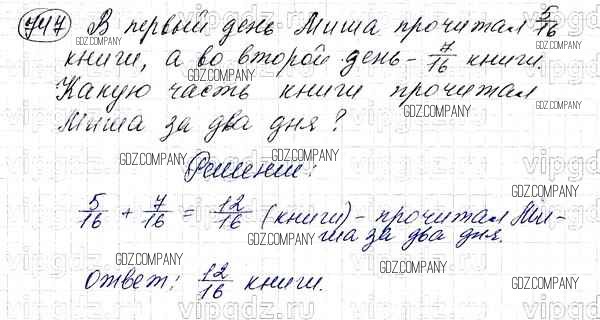 747 В первый день Миша прочитал 5/16
книги, а во второй день - 7/16 книги.
Какую часть книги прочитал
Миша за два дня?
Решение:
5/16 + 7/16 = 12/16 (книги) - прочитал Ми-
ша за два дня.
Ответ: 12/16 книги.
GDZ.COMPANY
vipgdz.ru